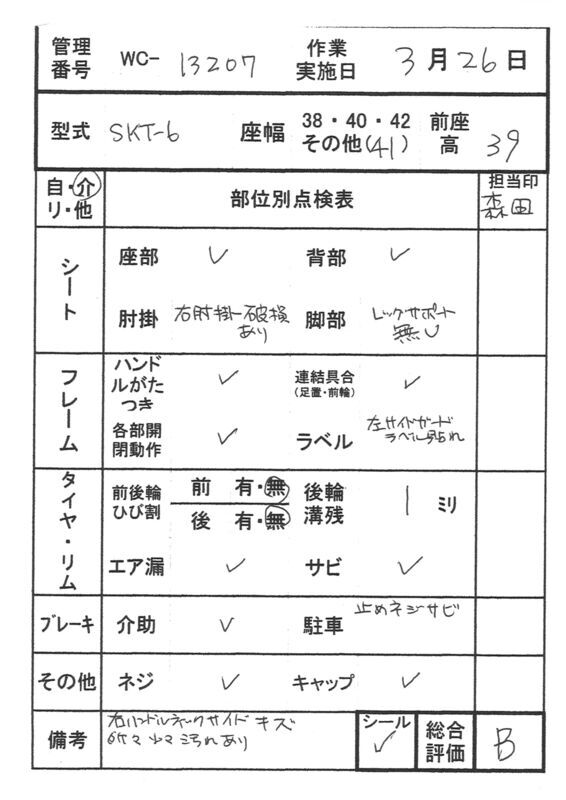 管理番号 WC- 13207 作業実施日 3月26日
型式 SKT-6 座幅 38・40・42 その他(41) 前座高 39
自・介 リ・他 部位別点検表 担当印 森田
シート 座部 ✓ 背部 ✓
肘掛 右肘掛 破損あり 脚部 レッグサポート無し
フレーム ハンドルがたつき ✓ 連結具合(足置・前輪) ✓
各部開閉動作 ✓ ラベル 左サイドガードラベル貼れ
タイヤ・リム 前後輪ひび割 前 有・無 後輪溝残 1 ミリ
後 有・無
エア漏 ✓ サビ ✓
ブレーキ 介助 ✓ 駐車 止めネジサビ
その他 ネジ ✓ キャップ ✓
備考 右ハンドルネックサイド キズ シール ✓ 総合評価 B
汚れあり